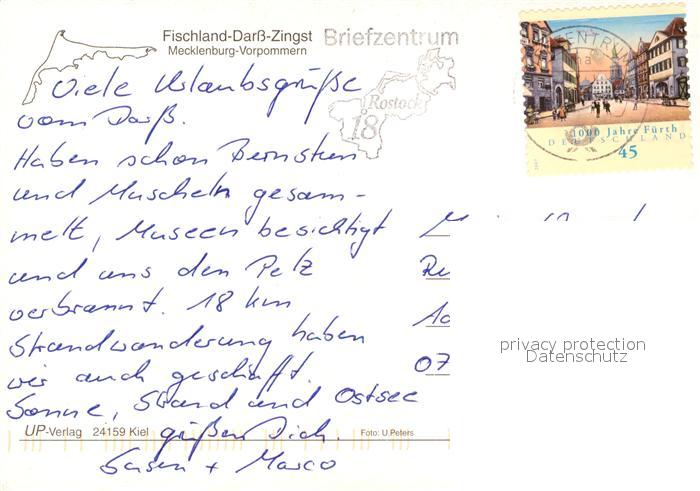 Fischland-Darß-Zingst
Mecklenburg-Vorpommern
Briefzentrum
Rostock
18
1000 Jahre Fürth
DEUTSCHLAND
45
Viele Urlaubsgrüße
vom Darß.
Haben schon Bernstein
und Muscheln gesam-
melt, Museen besichtigt
und uns den Pelz
verbrannt. 18 km
Strandwanderung haben
wir auch geschafft.
Sonne, Strand und Ostsee
grüßen Dich.
+ Marco
07
privacy protection
Datenschutz
UP-Verlag 24159 Kiel
Foto: U.Peters